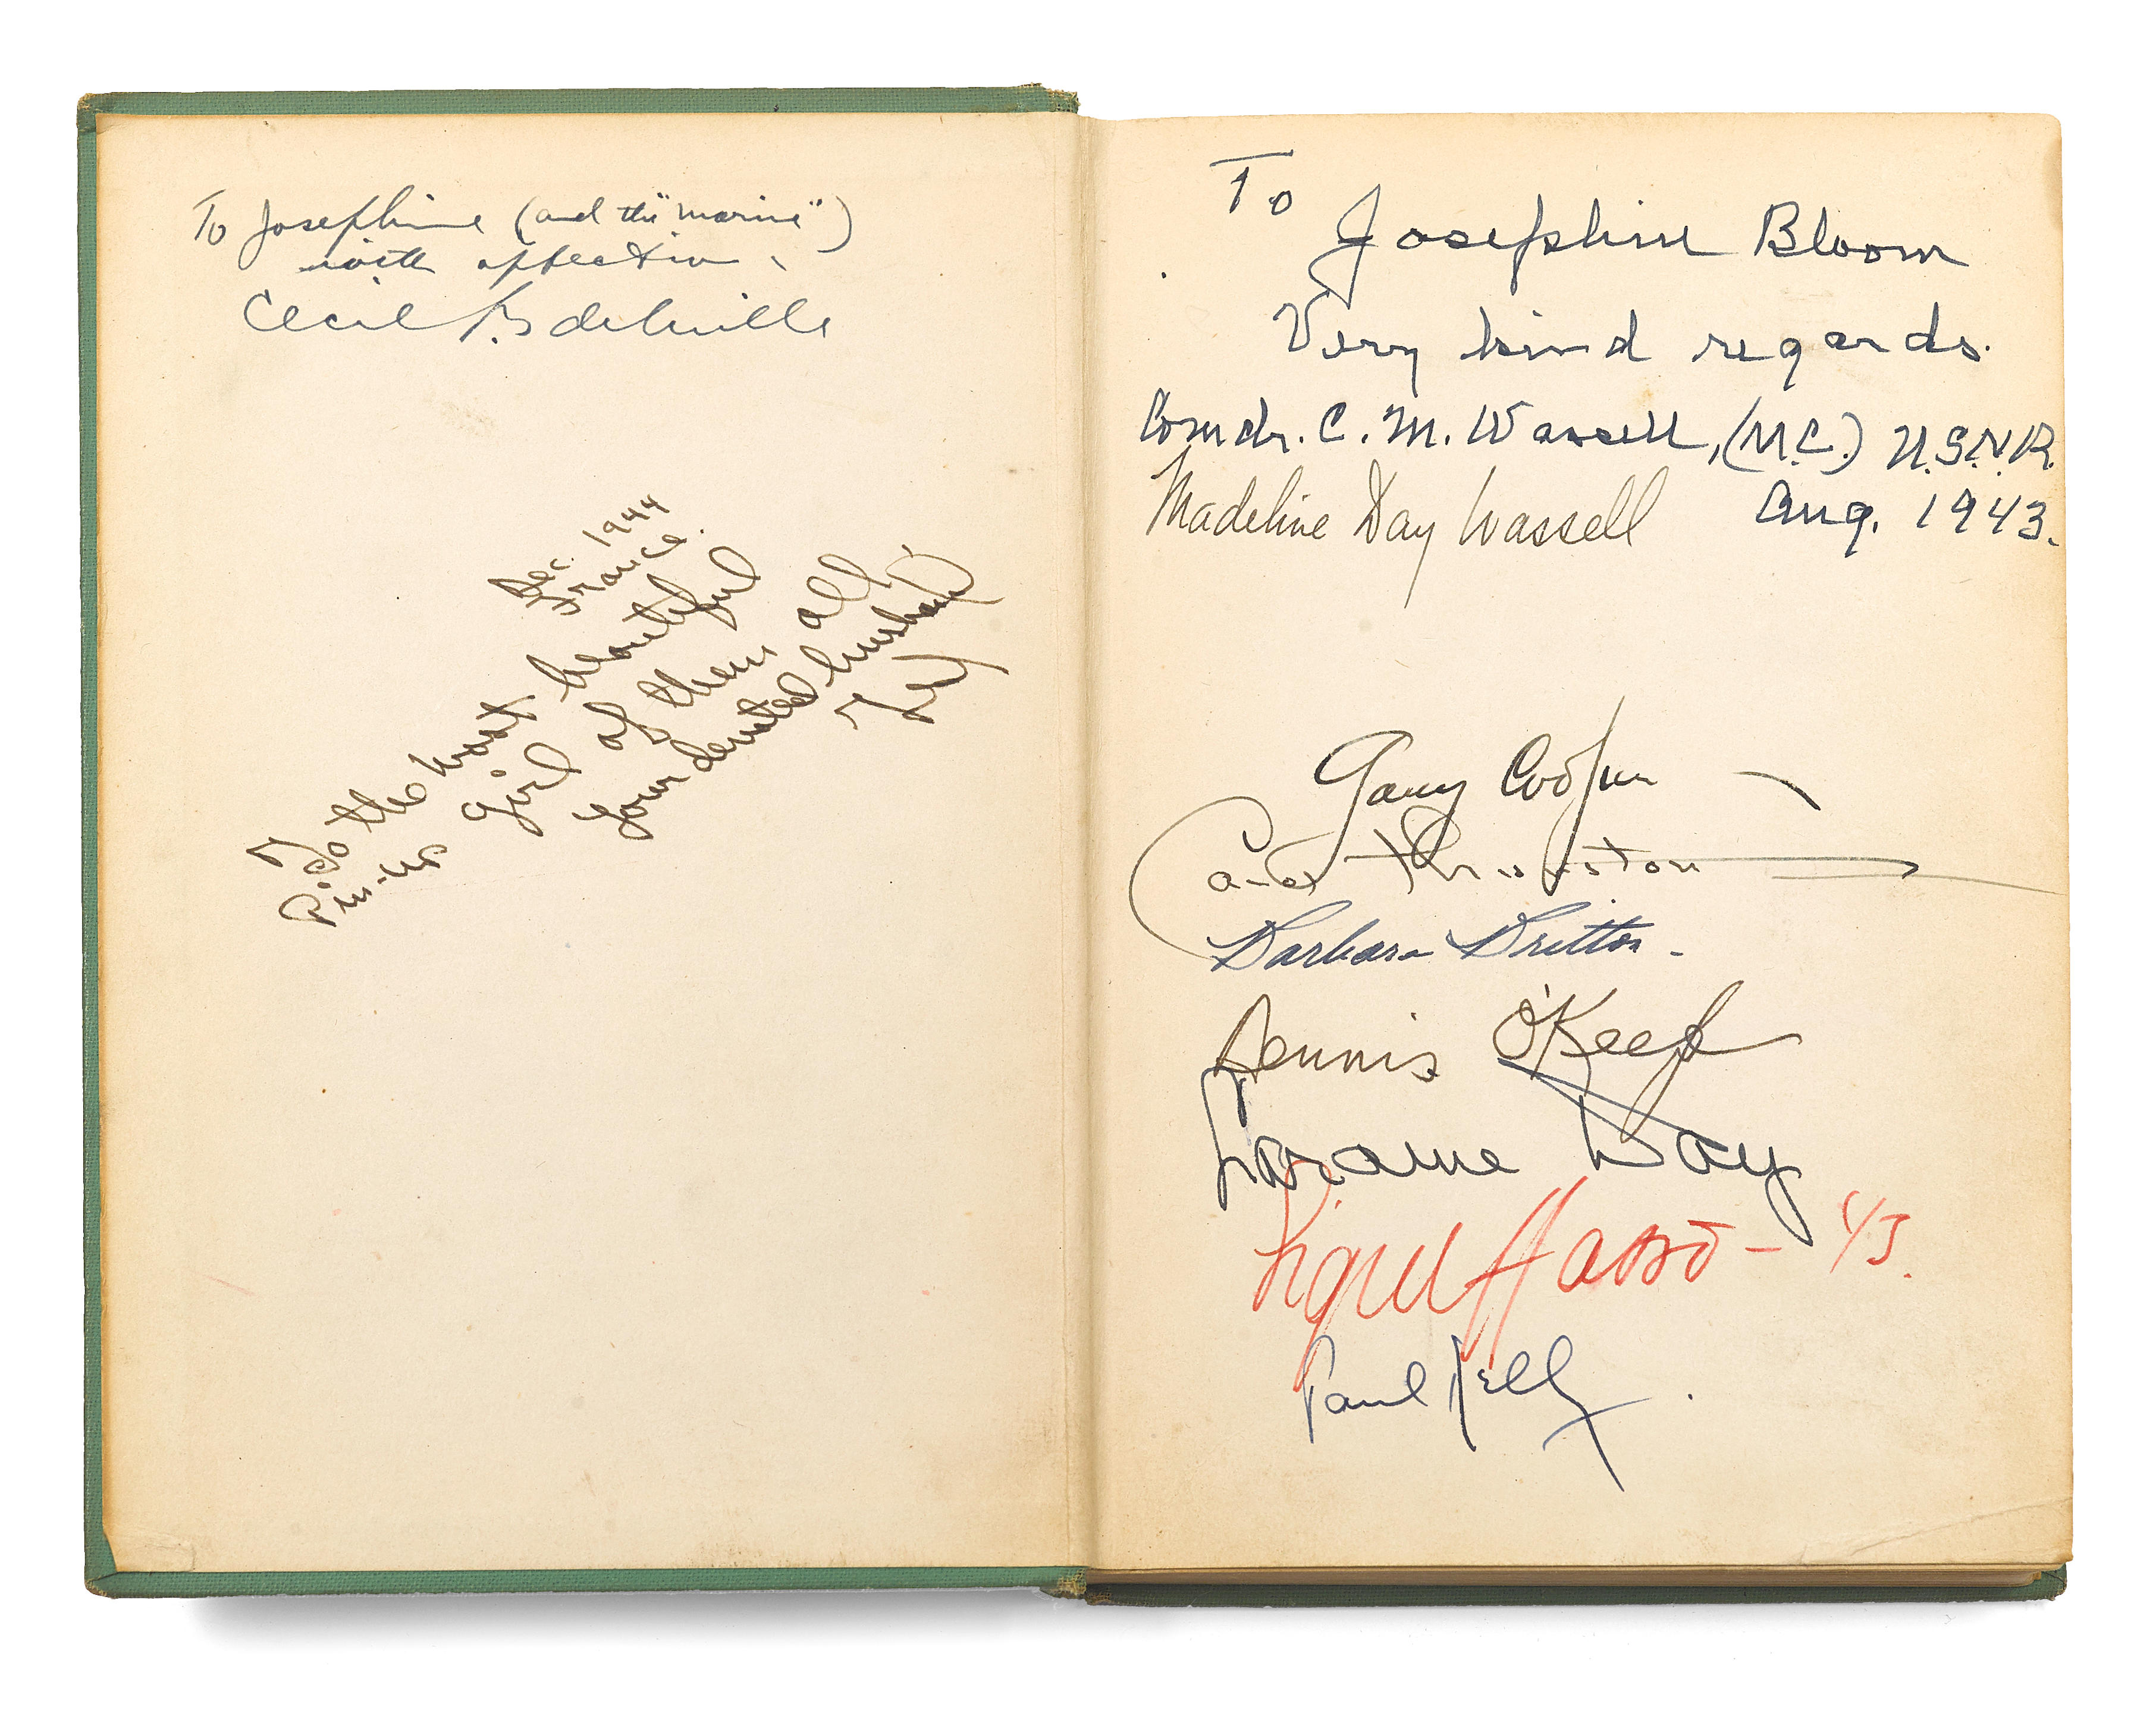 To Josephine (and the "marine")
with affection
Cecil B deMille
Dec. 1944
France.
To the most beautiful
Pin-up girl of them all
Your devoted husband
To
Josephine Bloom
Very kind regards.
Comdr. C. M. Wassell, (M.C.) U.S.N.R.
Madeline Day Wassell Aug. 1943.
Gary Cooper
Carol Thurston
Barbara Britton
Dennis O'Keefe
Laraine Day
Signe Hasso - 43.
Paul Kelly.